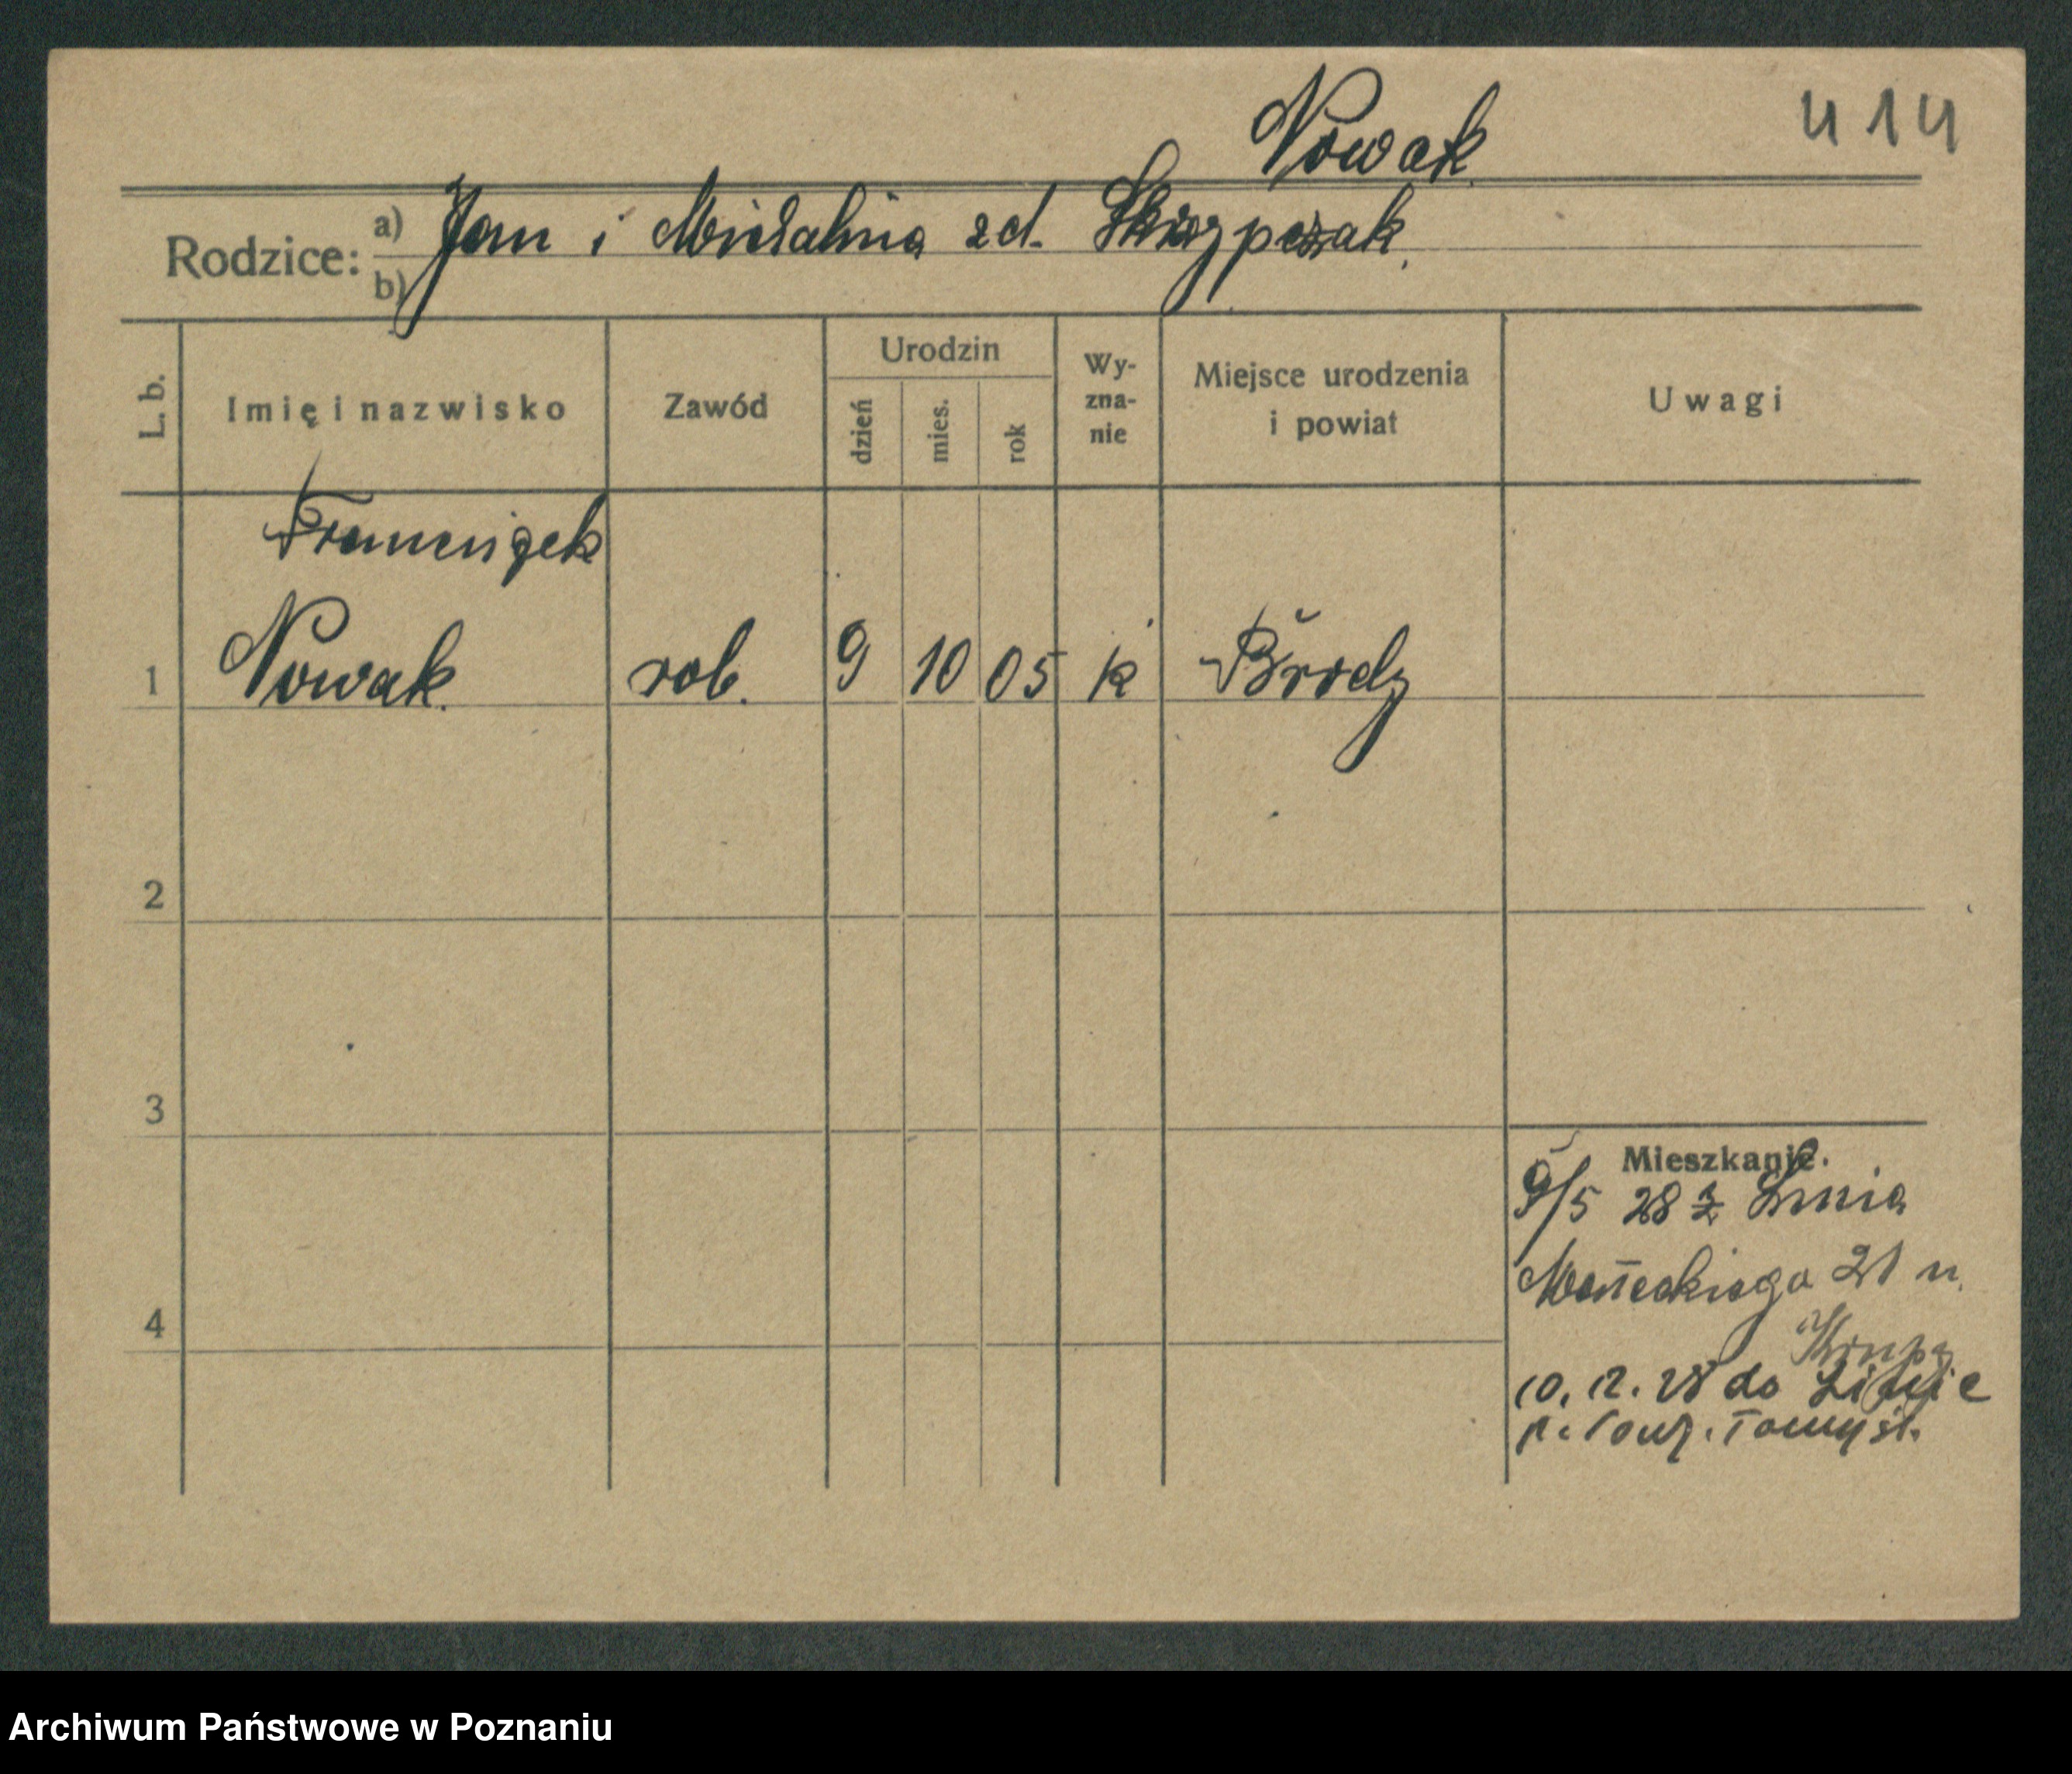 Nowak
414
Rodzice: a) Jan i Michalina zd. Skrzypczak.
b)
L. b. Imię i nazwisko Zawód Urodzin dzień mies. rok Wyznanie Miejsce urodzenia i powiat Uwagi
Franciszek
1 Nowak. rob. 9 10 05 k Brody
2
3
4
Mieszkanie.
9/5 28 z
21 u.
10. 12. 28 do
p. Nowy. Tomyśl.
Archiwum Państwowe w Poznaniu